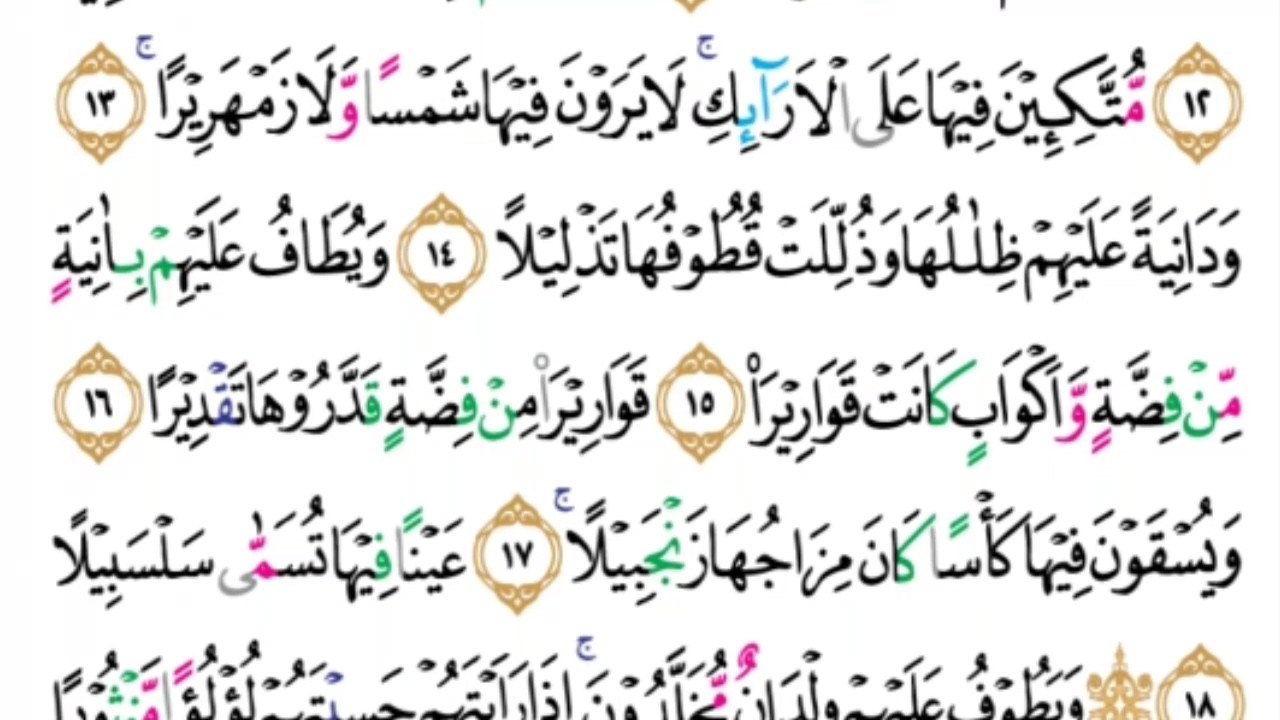 ١٢ مُّتَّكِـِٕيْنَ فِيْهَا عَلَى الْاَرَآىِٕكِ ۚ لَا يَرَوْنَ فِيْهَا شَمْسًا وَّلَا زَمْهَرِيْرًا ۚ ١٣
وَدَانِيَةً عَلَيْهِمْ ظِلٰلُهَا وَذُلِّلَتْ قُطُوْفُهَا تَذْلِيْلًا ١٤ وَيُطَافُ عَلَيْهِمْ بِاٰنِيَةٍ
مِّنْ فِضَّةٍ وَّاَكْوَابٍ كَانَتْ قَوَارِيْرَا۠ ١٥ قَوَارِيْرَا۟ مِنْ فِضَّةٍ قَدَّرُوْهَا تَقْدِيْرًا ١٦
وَيُسْقَوْنَ فِيْهَا كَأْسًا كَانَ مِزَاجُهَا زَنْجَبِيْلًا ۚ ١٧ عَيْنًا فِيْهَا تُسَمّٰى سَلْسَبِيْلًا
١٨ وَيَطُوْفُ عَلَيْهِمْ وِلْدَانٌ مُّخَلَّدُوْنَ ۚ اِذَا رَاَيْتَهُمْ حَسِبْتَهُمْ لُؤْلُؤًا مَّنْثُوْرًا